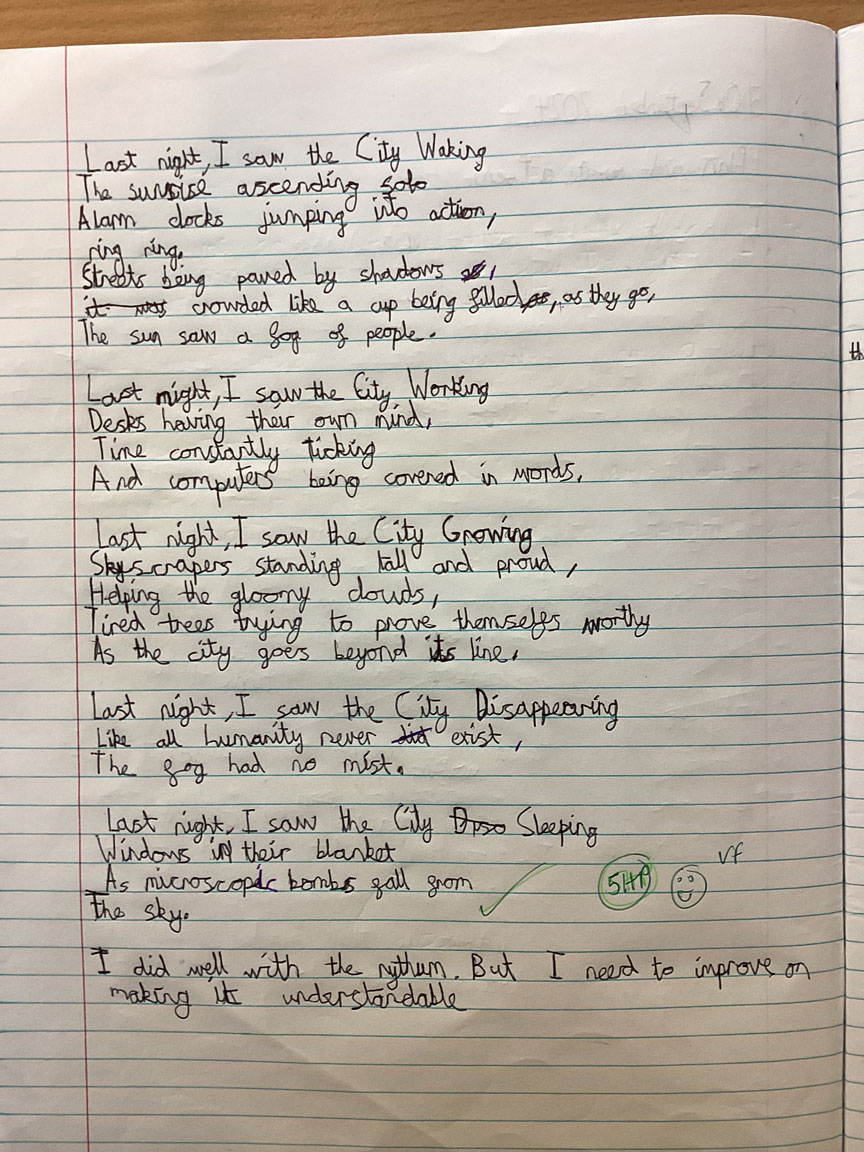 Last night, I saw the City Waking
The sunrise ascending solo
Alarm clocks jumping into action,
ring ring.
Streets being paved by shadows,
it was crowded like a cup being filled, as they go,
The sun saw a fog of people.
Last night, I saw the City Working
Desks having their own mind,
Time constantly ticking
And computers being covered in words.
Last night, I saw the City Growing
Skyscrapers standing tall and proud,
Helping the gloomy clouds,
Tired trees trying to prove themselfs worthy
As the city goes beyond its line.
Last night, I saw the City Disappearing
Like all humanity never did exist,
The fog had no mist.
Last night, I saw the City Sleeping
Windows in their blanket
As microscopic bombs fall from
The sky.
5HP
vf
I did well with the rythum. But I need to improve on
making it understandable
th